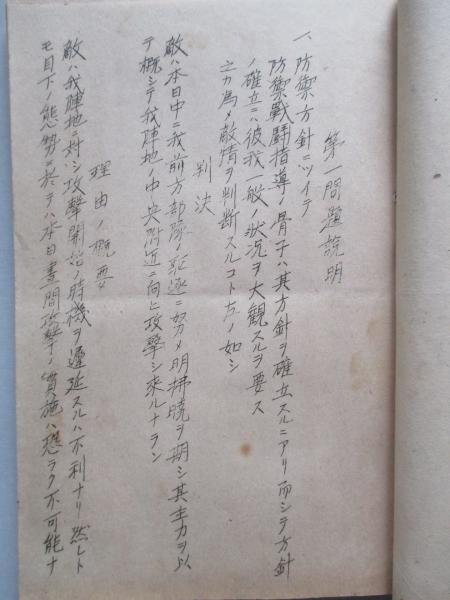 第一問題説明
一、防禦方針ニツイテ
防禦戦闘指導ノ骨子ハ其方針ヲ確立スルニアリ而シテ方針
ノ確立ニハ彼我一般ノ状況ヲ大観スルヲ要ス
之カ為メ敵情ヲ判断スルコト左ノ如シ
判決
敵ハ本日中ニ我前方部隊ノ駆逐ニ努メ明払暁ヲ期シ其主力ヲ以
テ概シテ我陣地ノ中央附近ニ向ヒ攻撃シ来ルナラン
理由ノ概要
敵ハ我陣地ニ対シ攻撃開始ノ時機ヲ遷延スルハ不利ナリ然レト
モ目下ノ態勢ニ於テハ本日昼間攻撃ノ実施ハ恐ラク不可能ナ